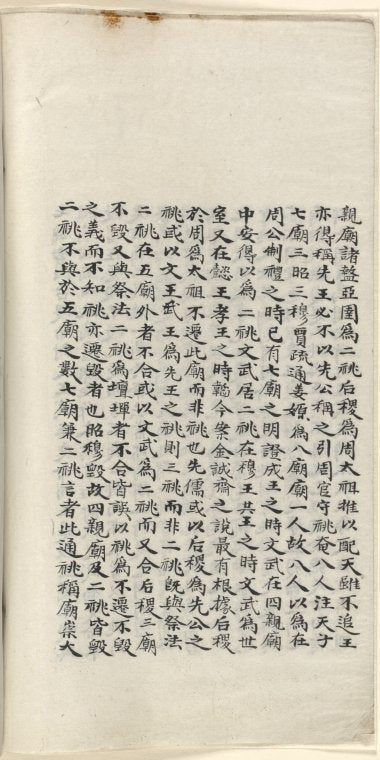 親廟諸盩亞圉為二祧后稷為周太祖推以配天雖不追王
亦得稱先王必不以先公稱之引周官守祧奄八人注天子
七廟三昭三穆賈疏通姜嫄為八廟廟一人故八人以為在
周公制禮之時已有七廟之明證成王之時文武在四親廟
中安得以為二祧文武居二祧在穆王共王之時文武為世
室又在懿王孝王之時鶚今案金誠齋之說最有根據后稷
於周為太祖不遷此廟而非祧也先儒或以后稷為先公之
祧或以文王武王為先王之祧則三祧而非二祧既與祭法
二祧在五廟外者不合或以文武為二祧而又合后稷三廟
不毀又與祭法二祧為壇墠者不合皆誤以祧為不遷不毀
之義而不知祧亦遷毀者也昭穆毀故四親廟及二祧皆毀
二祧不與於五廟之數七廟兼二祧言者此通祧稱廟崇大